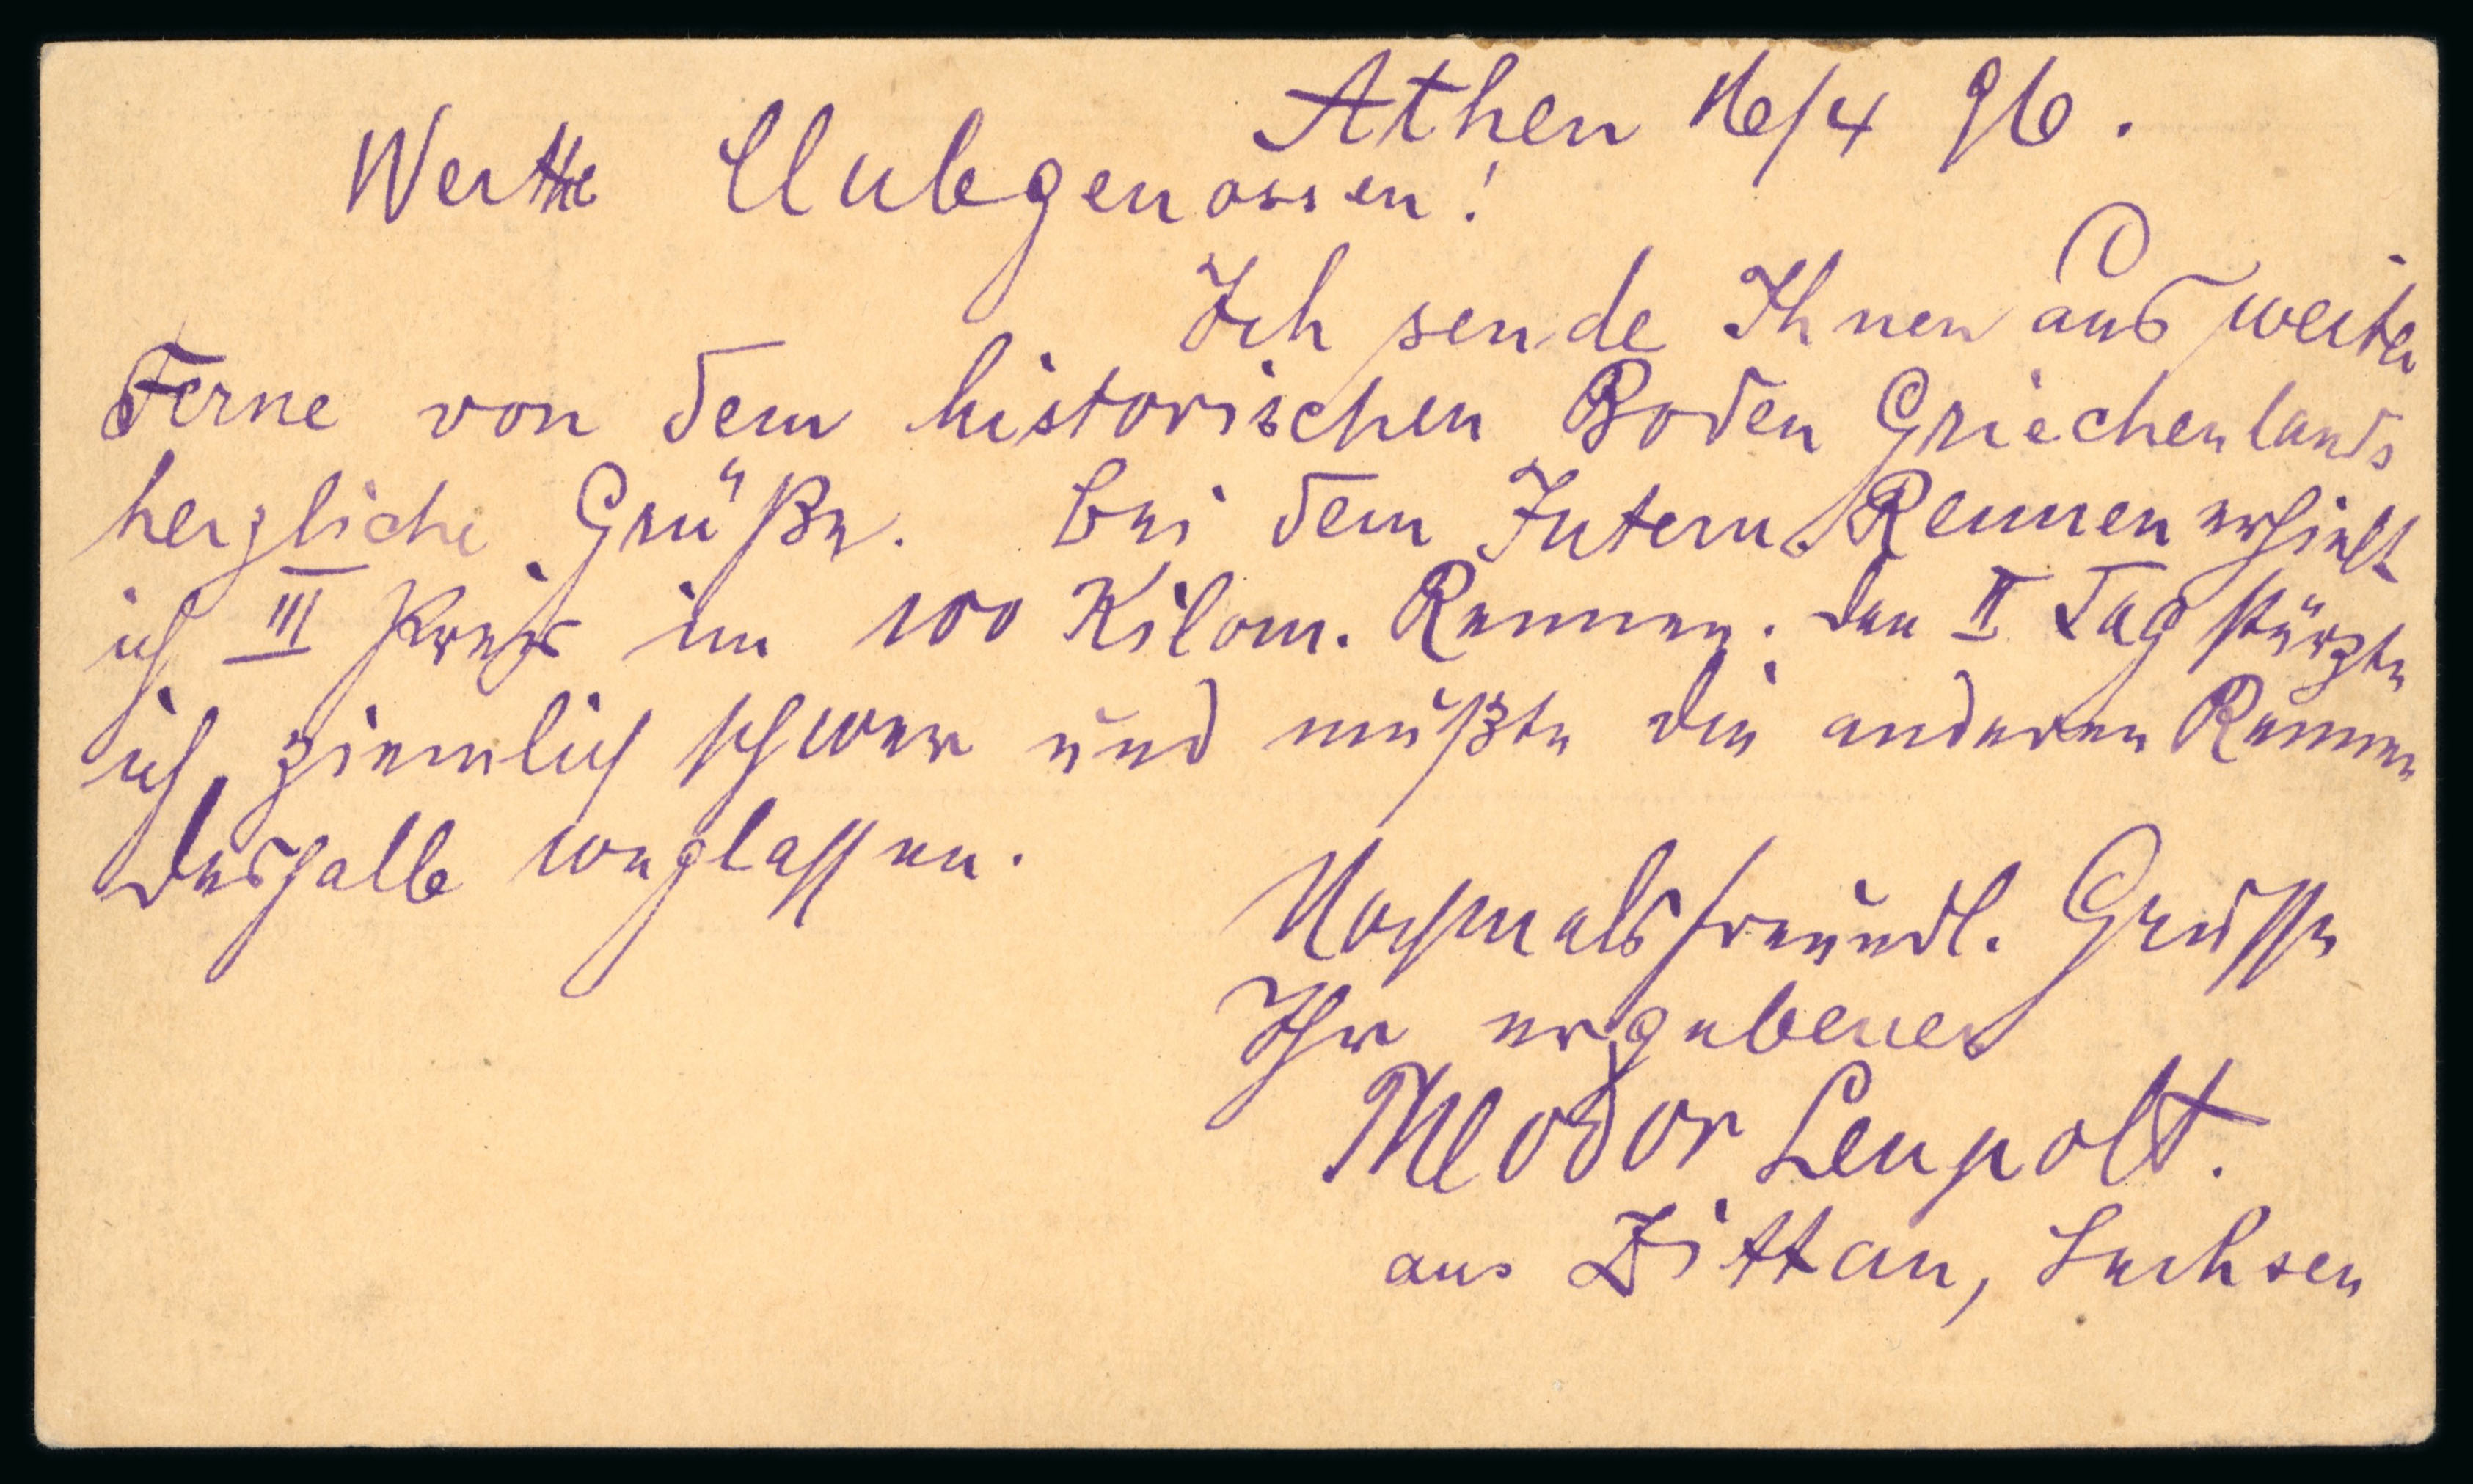 Athen 16/4 96.
Werthe Clubgenossen!
Ich sende Ihnen aus weiter
Ferne von dem historischen Boden Griechenlands
herzliche Grüße. Bei dem Intern. Rennen erhielt
ich III Preis im 100 Kilom. Rennen. Den II Tag stürzte
ich ziemlich schwer und mußte die anderen Rennen
deshalb weglassen.
Nochmals freundl. Grüsse
Ihr ergebener
Theodor Leupolt.
aus Zittau, Sachsen